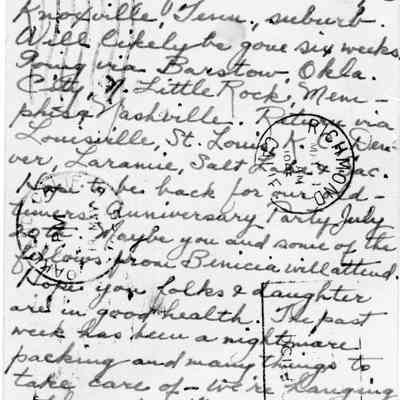 Knoxville, Tenn., suburb.
Will likely be gone six weeks.
Going via Barstow, Okla.
City, N. Little Rock, Mem-
phis, Nashville. Return via
Louisville, St. Louis, K. Den-
ver, Laramie, Salt L. Sac.
Hope to be back for our old-
timers Anniversary Party July
Maybe you and some of the
fellows from Benicia will attend.
Hope you folks & daughter
are in good health. The past
week has been a nightmare
packing and many things to
take care of - we're hanging
RICHMOND
CALIF.
AM